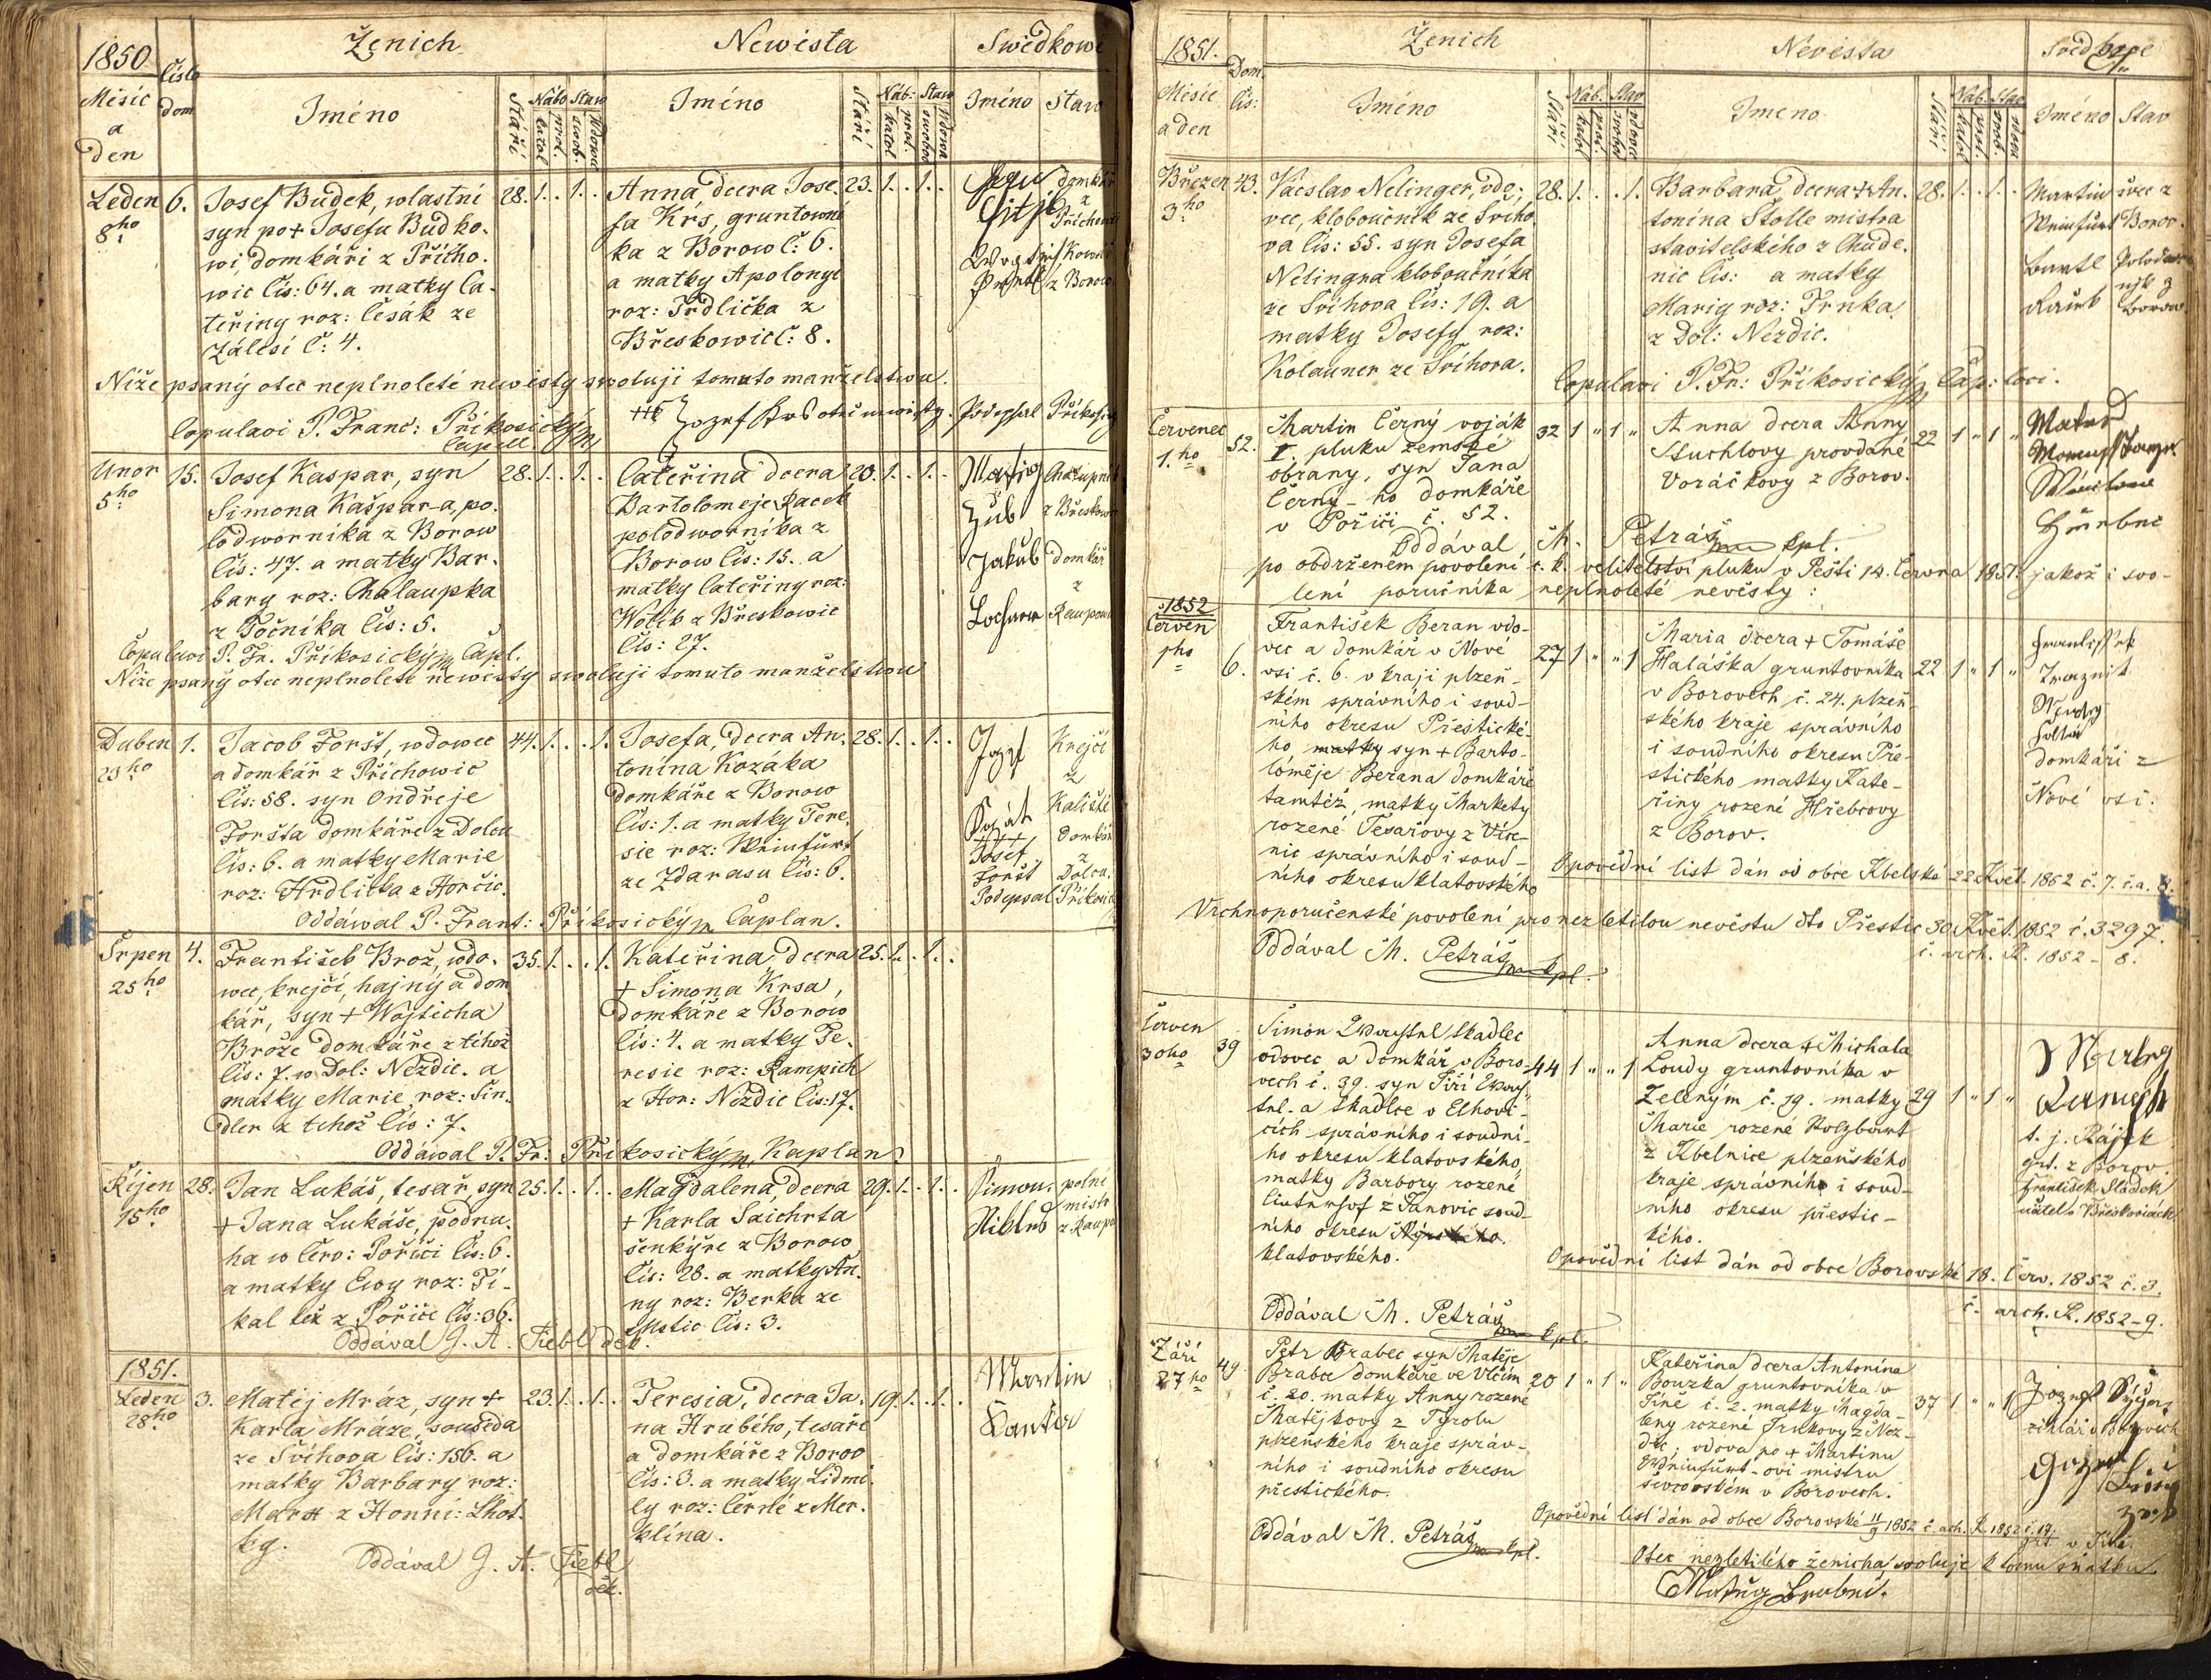 1850
Ženich
Newěsta
Swědkowé
Měsíc
a
den
číslo
dom
Jméno
Stáří
Nábo
katol
prot.
Staw
swob.
Wdowec
Jméno
Stáří
Náb:
katol
prot.
Staw
swobod
Wdowa
Jméno
Staw
Leden
8ho
6.
Josef Budek, wlastní
syn po + Josefu Budko-
wi, domkáři z Přícho-
wic čís: 64. a matky Ca-
teřiny roz: Česák ze
Zálesí č: 4.
28. 1. . 1. .
Anna, dcera Jose-
fa Krs, gruntowní-
ka z Borow č: 6.
a matky Apolonye
roz: Trdlička z
Břeskowic č: 8.
23. 1. . 1. .
domkář
z
Příchowic
z Borow
Níže psaný otec neplnoleté newěsty swoluji tomuto manželstwu.
Josef Krs otec newěsty. Podepsal Příkosický
Copulavi P. Franc: Příkosický
Capell
Unor
5ho
15.
Josef Kaspar, syn
Simona Kašpar-a, po-
lodworníka z Borow
čís: 47. a matky Bar-
bary roz: Chalaupka
z Točníka čís: 5.
28. 1. . 1. .
Cateřina dcera
Bartolomeje Racek
polodworníka z
Borow čís: 15. a
matky Cateřiny roz:
Wotib z Břeskowic
čís: 27.
20. 1. . 1. .
Matig
Zub
Jakub
Chalupník
z Břeskowic
domkář
z
Copulavi P. Fr. Příkosický Capl.
Níže psaný otec neplnoleté newěsty swoluji tomuto manželstwu
Duben
23ho
1.
Jacob Foršt, wdowec
a domkář z Příchowic
čís: 58. syn Ondřeje
Foršta domkáře z Dolcu
čís: 6. a matky Marie
roz: Hrdlička z Horčic.
44. 1. . . 1.
Josefa, dcera An-
tonína Kozáka
domkáře z Borow
čís: 1. a matky Tere-
sie roz: Weinfurt
ze Zdarasu čís: 6.
28. 1. . 1. .
Jozef
+++
Josef
Foršt
Podepsal
Krejčí
z
Kaliště
domkář
z
Dolcu.
Příkosický
Oddáwal P. Frant: Příkosický Caplan.
Srpen
25ho
4.
František Brož, wdo-
wec, krejčí, hajný a dom-
kář, syn + Wojticha
Brože domkáře z téhož
čís: 7. w Dol: Nezdic. a
matky Marie, roz: Šin-
dler z tehož čís: 7.
35. 1. . . 1.
Kateřina, dcera
+ Šimona Krsa,
domkáře z Borow
čís: 4. a matky Te-
resie roz: Rampich
z Hor: Nezdic čís: 17.
25. 1. . 1. .
Oddáwal P. Fr: Příkosický Kaplan.
Říjen
15ho
28.
Jan Lukáš, tesař, syn
+ Jana Lukáše, podru-
ha w Čerw: Poříči čís: 6.
a matky Ewy roz: Ti-
kal též z Poříče čís: 36.
25. 1. . 1. .
Magdalena, dcera
+ Karla Saichrta
šenkýře z Borow
čís: 28. a matky An-
ny roz: Berka ze
Mstic čís: 3.
29. 1. . 1. .
Simon
polní
mistr
z Raupo
Oddával J. A. Fiebl děk.
1851.
Leden
28ho
3.
Matěj Mráz, syn +
Karla Mráze, souseda
ze Švihova čís: 156. a
matky Barbary roz:
Marx z Honní: Lhot-
ky.
23. 1. . 1. .
Teresia, dcera Ja-
na Hrubého, tesaře
a domkáře z Borov
čís: 3. a matky Lidmi-
ly roz: Černé z Mer-
klína.
19. 1. . 1. .
Martin
Kanta
Oddával J. A. Fiebl
děk.
1851.
Ženich
Nevěsta
Svědkové
Měsíc
a den
Dom.
čís:
Jméno
Stáří
Náb.
katol
prot.
Stav
svobod
vdovec
Jmeno
Stáří
Náb.
katol
prot.
Stav
svob.
vdova
Jméno
Stav
Březen
3ho
43.
Václav Nelinger, vdo-
vec, kloboučník ze Šviho-
va čís: 55. syn Josefa
Nelingra kloboučníka
ze Švihova čís: 19. a
matky Josefy roz:
Kolauner ze Švihova.
28. 1. . . 1.
Barbara, dcera + An-
tonína Štolle mistra
stavitelského z Chude-
nic čís: a matky
Marie roz: Trnka
z Dol: Nezdic.
28. 1. . 1. .
Martin
Weinfurt
Bartl
Racek
švec z
Borov.
Polodvor-
ník z
Borow.
Copulavi P. Fr: Příkosický Cap: loci.
Červenec
1.ho
52.
Martin Černý voják
I. pluku zemské
obrany, syn Jana
Černý-ho domkáře
v Poříči č. 52.
32 1 " 1 "
Anna dcera Anny
Stuchlovy provdané
Voráčkovy z Borov.
22 1 " 1 "
Oddával M. Petráš kpl.
po obdrženém povolení c. k. velitelství pluku v Pešti 14. června 1851. jakož i svo-
lení poručníka neplnoleté nevěsty:
1852
Červen
1ho
6.
František Beran vdo-
vec a domkář v Nové
vsi č. 6. v kraji plzeň-
ském správního i soud-
ního okresu Přestické-
ho, matky syn + Barto-
loměje Berana domkáře
tamtéž, matky Markety
rozené Tesařovy z Víte-
nic správního i soud-
ního okresu klatovského
27 1 " " 1
Maria dcera + Tomáše
Haláška gruntovníka
v Borovech č. 24. plzeň-
ského kraje správního
i soudního okresu Pře-
stického matky Kate-
řiny rozené Hřebcovy
z Borov.
22 1 " 1 "
domkáři z
Nové vsi.
Opovědní list dán od obce Kbelské 22 Květ. 1852 č. 7. č.a. 8.
Vrchnoporučenské povolení pro nezletilou nevěstu dto Přestic 30 Květ. 1852 č. 3297.
č. arch. R. 1852 - 8.
Oddával M. Petráš kpl.
Červen
30ho
39
Šimon tkadlec
vdovec a domkář v Boro-
vech č. 39. syn Jiří
a tkadlce v Elhovi-
cích správního i soudní-
ho okresu klatovského,
matky Barbory rozené
z Janovic soud-
ního okresu
klatovského.
44 1 " " 1
Anna dcera + Michala
Loudy gruntovníka v
Zeleným č. 19. matky
Marie rozené Holzbart
z Kbelnice plzeňského
kraje správního i soud-
ního okresu přestic-
kého.
29 1 " 1 "
t. j. Rájek
grt. z Borov.
František Sládek
učitel v Břeskovicích
Opovědní list dán od obce Borovské 18. Červ. 1852 č. 3.
č. arch. R. 1852-9.
Oddával M. Petráš kpl.
Září
27ho
49.
Petr Brabec syn Matěje
Brabce domkáře ve Vlčím
č. 20. matky Anny rozené
Matějkovy z Tyrolu
plzeňského kraje správ-
ního i soudního okresu
přestického.
20 1 " 1 "
Kateřina dcera Antonína
Bouzka gruntovníka v
Jíně č. 2. matky Magda-
leny rozené Trnkovy z Nez-
dic; vdova po + Martinu
Weinfurt-ovi mistru
ševcovském v Borovech.
37 1 " " 1
Jozef
cihlář v Borovech
Opovědní list dán od obce Borovské 11/9 1852 č. arch. R. 1852 č. 19.
grt. v Jíně.
Otec nezletilého ženicha, svoluje k tomu sňatku
Oddával M. Petráš kpl.